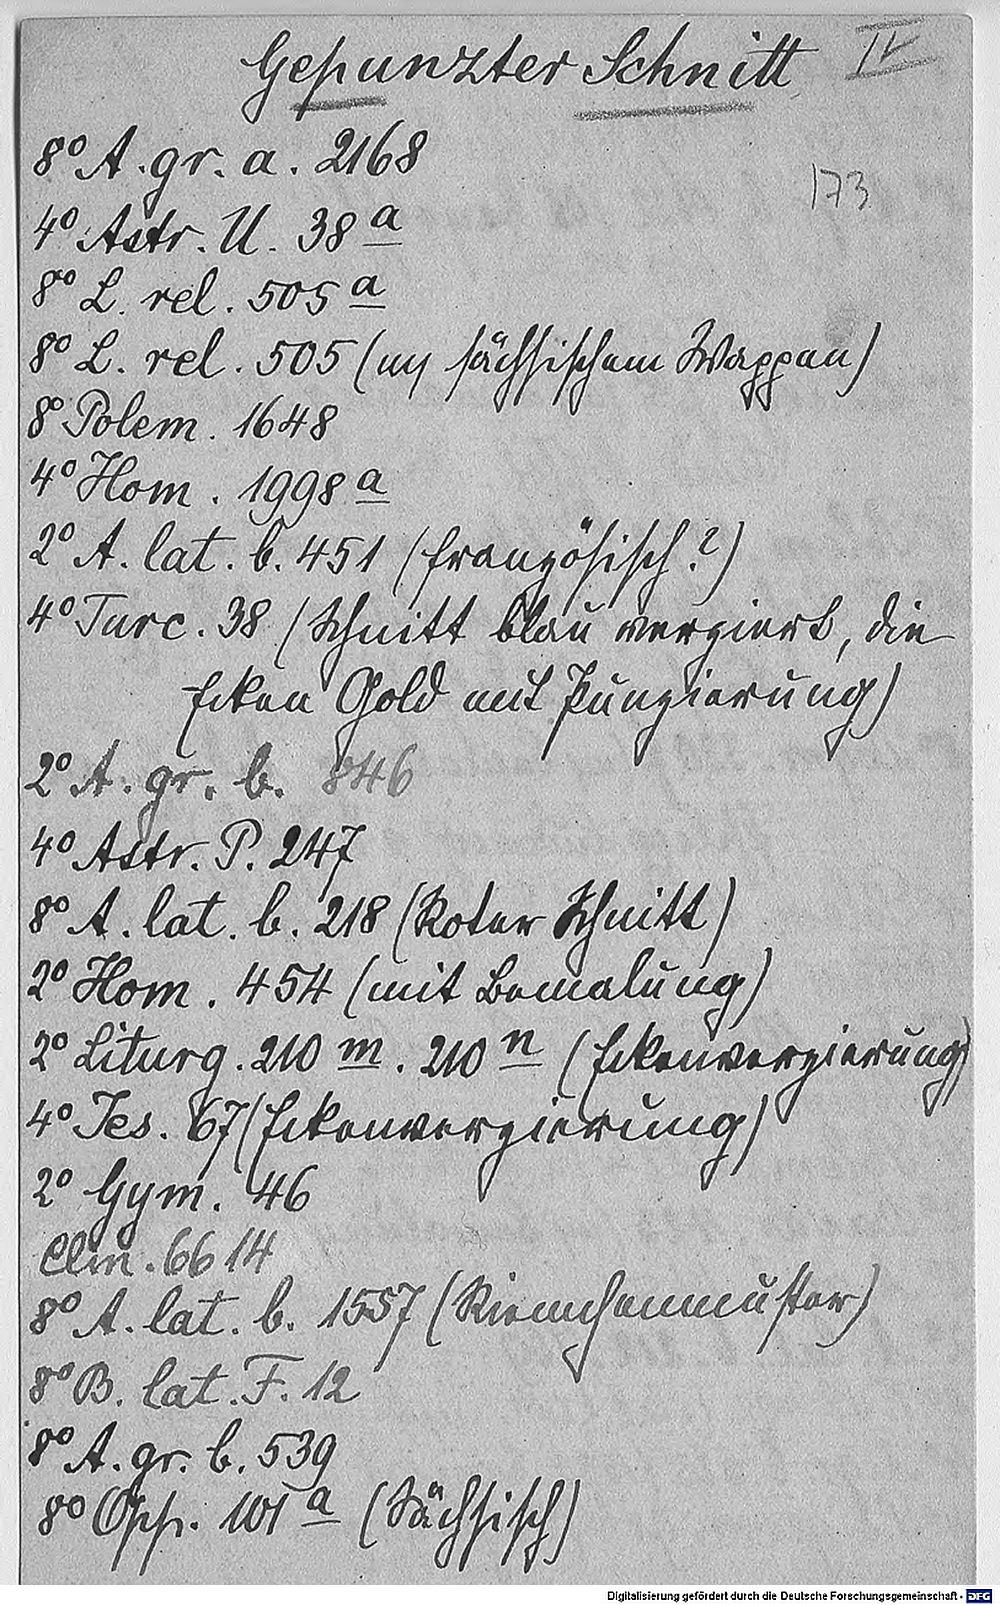 Gepunzter Schnitt IV
8° A. gr. a. 2168
173
4° Astr. U. 38 a
8° L. rel. 505 a
8° L. rel. 505 (m sächsischem Wappen)
8° Polem. 1648
4° Hom. 1998 a
2° A. lat. b. 451 (französisch?)
4° Turc. 38 (Schnitt blau verziert, die
Ecken Gold mit Punzierung)
2° A. gr. b. 846
4° Astr. P. 247
8° A. lat. b. 218 (Roter Schnitt)
2° Hom. 454 (mit Bemalung)
2° Liturg. 210 m. 210 n (Eckenverzierung)
4° Jes. 67 (Eckenverzierung)
2° Gym. 46
Clm. 6614
8° A. lat. b. 1557 (Riemchenmuster)
8° B. lat. F. 12
8° A. gr. b. 539
8° Opp. 101 a (Sächsisch)
Digitalisierung gefördert durch die Deutsche Forschungsgemeinschaft - DFG